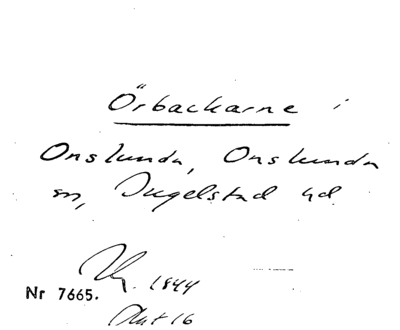 Örbackarne i
Onslunda, Onslunda
sn, Ingelstad hd
1844
Nr 7665.
Akt 16